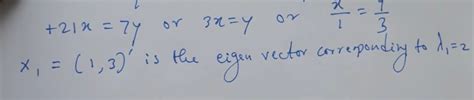 +21x = 7y or 3x = y or x/1 = y/3
x₁ = (1,3)' is the eigen vector corresponding to λ₁=2